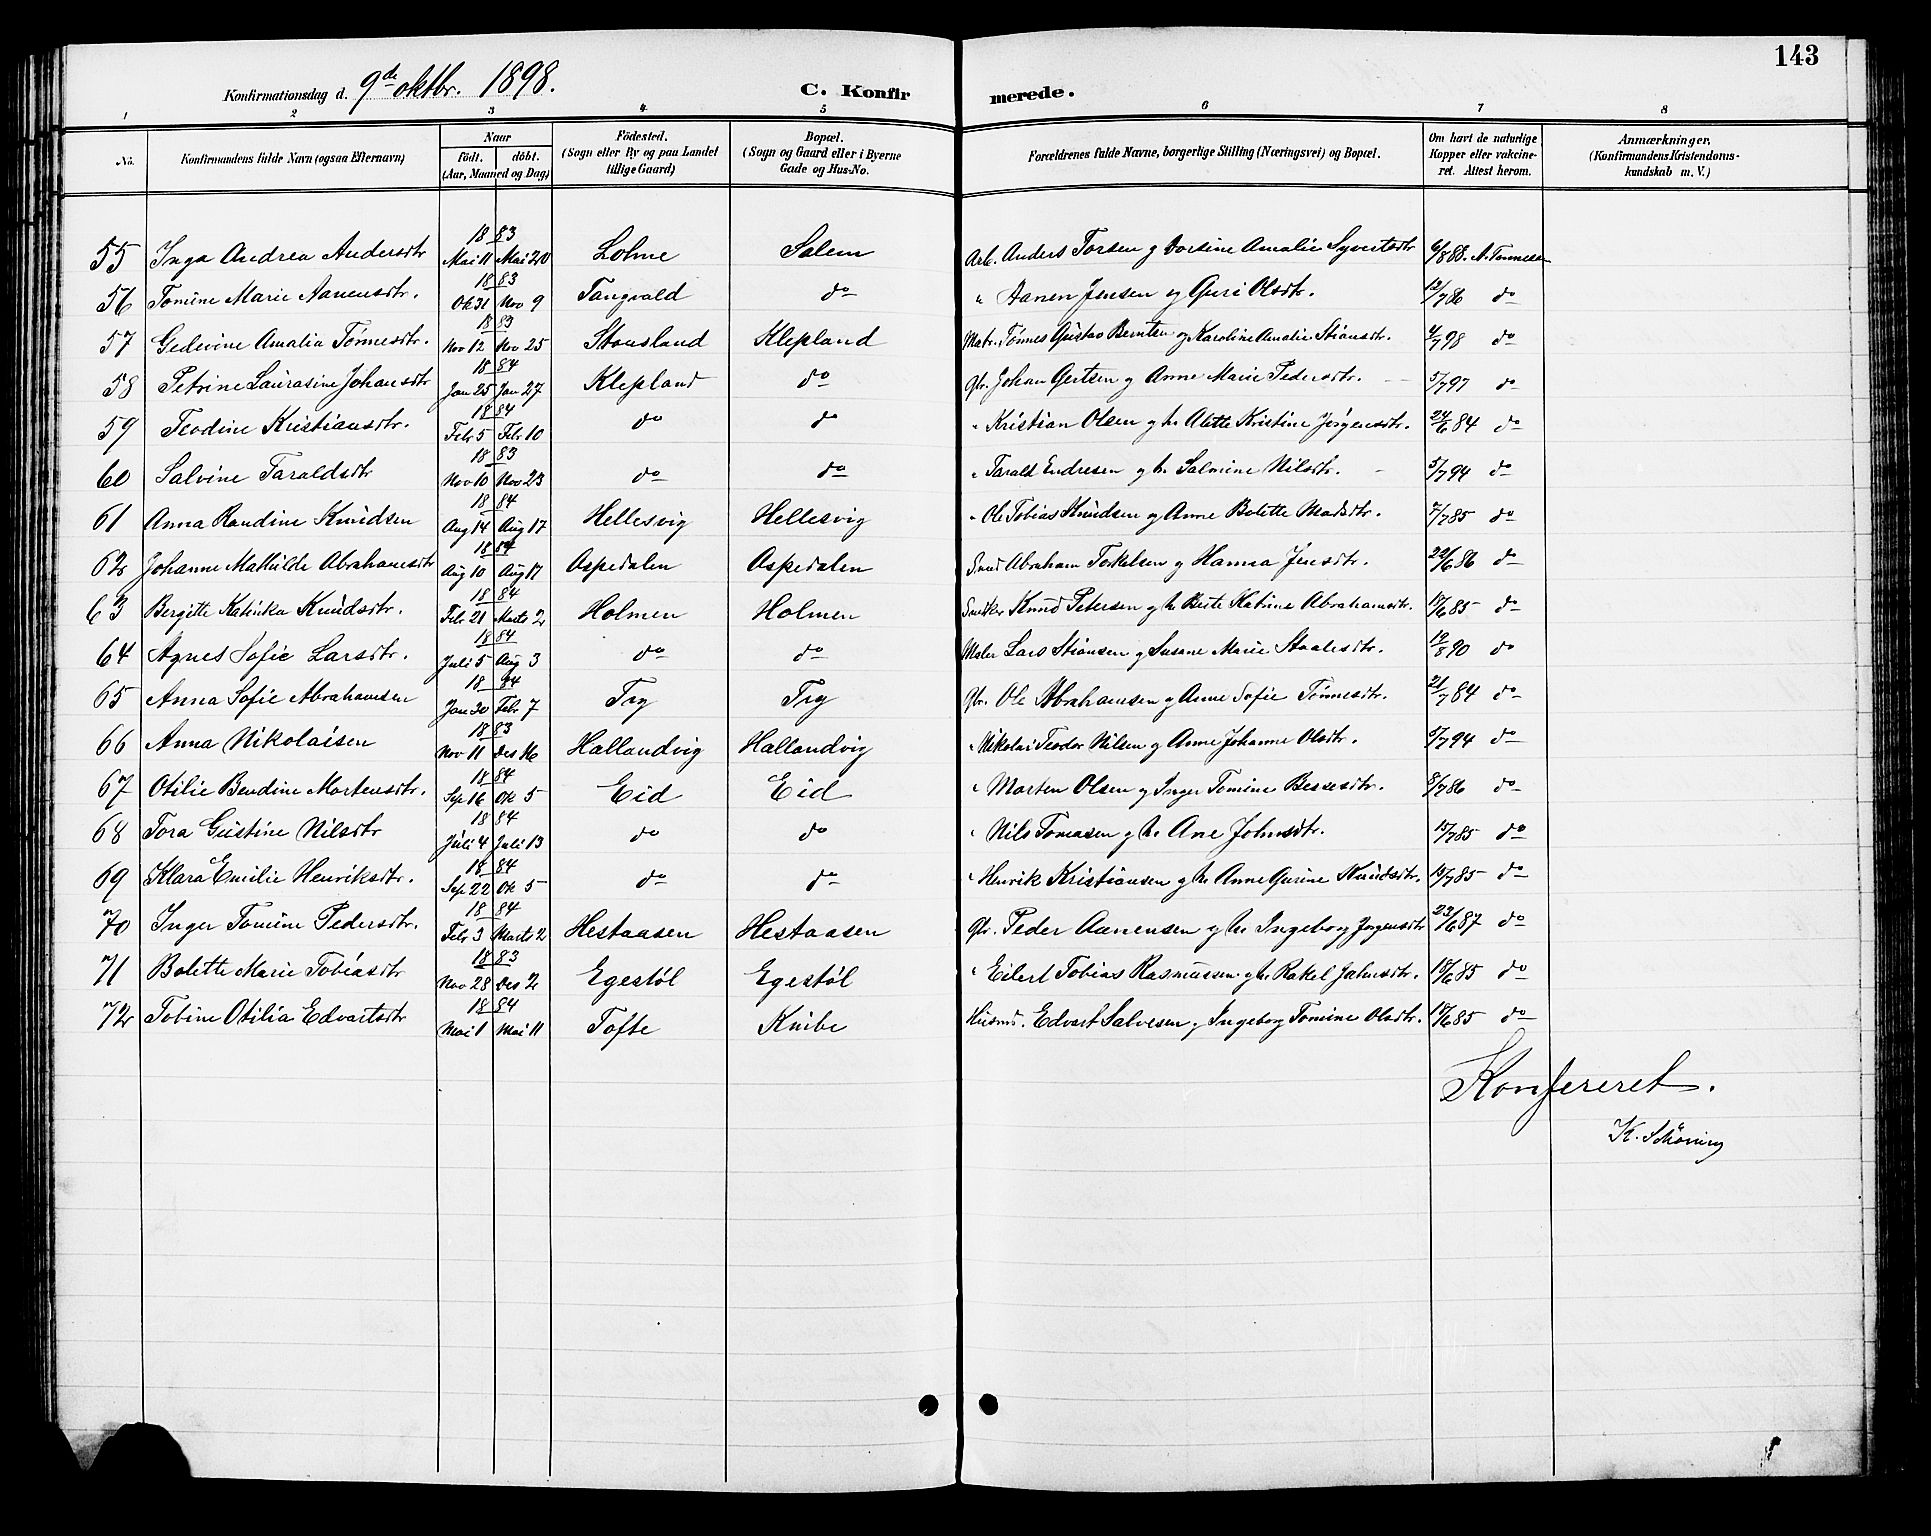 143
Konfirmationsdag d. 9de oktbr. 1898. C. Konfir merede.
1 2 3 4 5 6 7 8
No. Konfirmandens fulde Navn (ogsaa Efternavn) Naar födt. döbt. (Aar, Maaned og Dag) Födested. (Sogn eller By og paa Landet tillige Gaard) Bopæl. (Sogn og Gaard eller i Byerne Gade og Hus-No. Forældrenes fulde Navne, borgerlige Stilling (Næringsvei) og Bopæl. Om havt de naturlige Kopper eller vakcineret. Attest herom. Anmærkninger. (Konfirmandens Kristendomskundskab m. V.)
55 Inga Andrea Andersdtr 1883 Mai 11 Mai 20 Lohne Salem Arb. Anders Torsen g Dortine Amalie Syvertsdtr 6/8 85. N. Tønnesen
56 Tomine Marie Aanensdtr. 1883 Ok 31 Nov 9 Tangvald do " Aanen Jensen og Guri Olsdtr. 13/7 86 do
57 Gedevine Amalia Tönnesdtr. 1883 Nov 12 Nov 25 Stousland Klepland Matr. Tönnes Gustav Berntsen og Karoline Amalie Stiansdtr. 4/7 98 do
58 Petrine Laurasine Johansdtr 1884 Jan 25 Jan 27 Klepland do Gbr. Johan Gertsen g Anne Marie Pedersdtr. 5/7 97 do
59 Teodine Kristiansdtr. 1884 Febr 5 Febr 10 do do " Kristian Olsen g h. Alette Kristine Jörgensdtr. 24/6 84 do
60 Salvine Taraldsdtr 1883 Nov 10 Nov 23 do do " Tarald Endresen g h. Salmine Nilsdtr. 5/7 94 do
61 Anna Randine Knudsen 1884 Aug 14 Aug 17 Hellesvig Hellesvig " Ole Tobias Knudsen og Anne Bolette Madsdtr. 7/7 85 do
62 Johanne Mathilde Abrahamsdtr 1884 Aug 10 Aug 17 Aspedalen Aspedalen Smed Abraham Torkelsen g Hanna Jensdtr. 22/6 86 do
63 Bergitte Katinka Knudsdtr. 1884 Febr 21 Marts 2 Holmen Holmen Snedker Knud Petersen g h. Berte Katrine Abrahamsdtr. 18/6 85 do
64 Agnes Sofie Larsdtr. 1884 Juli 5 Aug 3 do do Maler Lars Stiansen g Susane Marie Staalesdtr. 19/8 90 do
65 Anna Sofie Abrahamsen 1884 Jan 30 Febr 7 Try Try Gbr. Ole Abrahamsen g Anne Sofie Tönnesdtr. 21/7 84 do
66 Anna Nikolaisen 1883 Nov 11 Des 16 Hallandvig Hallandvig " Nikolai Teodor Nilsen g Anne Johanne Olsdtr. 5/7 94 do
67 Otilie Bendine Mortensdtr. 1884 Sep 16 Ok 5 Eid Eid " Morten Olsen g Inger Tomine Bessesdtr. 8/7 86 do
68 Tora Gustine Nilsdtr 1884 Juli 4 Juli 13 do do " Nils Tomasen g h. Ane Johnsdtr. 15/7 85 do
69 Klara Emilie Henriksdtr. 1884 Sep 22 Ok 5 do do " Henrik Kristiansen g h. Anne Gurine Knudsdtr. 15/7 85 do
70 Inger Tomine Pedersdtr. 1884 Febr 3 Marts 2 Hestaasen Hestaasen Gbr. Peder Aanensen g h. Ingeborg Jörgensdtr 23/6 87 do
71 Bolette Marie Tobiasdtr 1883 Nov 28 Des 2 Egestöl Egestöl " Eilert Tobias Rasmussen g h. Rakel Jahnsdtr. 18/6 85 do
72 Tobine Otilia Edvartsdtr 1884 Mai 1 Mai 11 Tofte Knibe Husmd. Edvart Salvesen g Ingeborg Tomine Olsdtr. 18/6 85 do
Konfereret.
K. Schöning